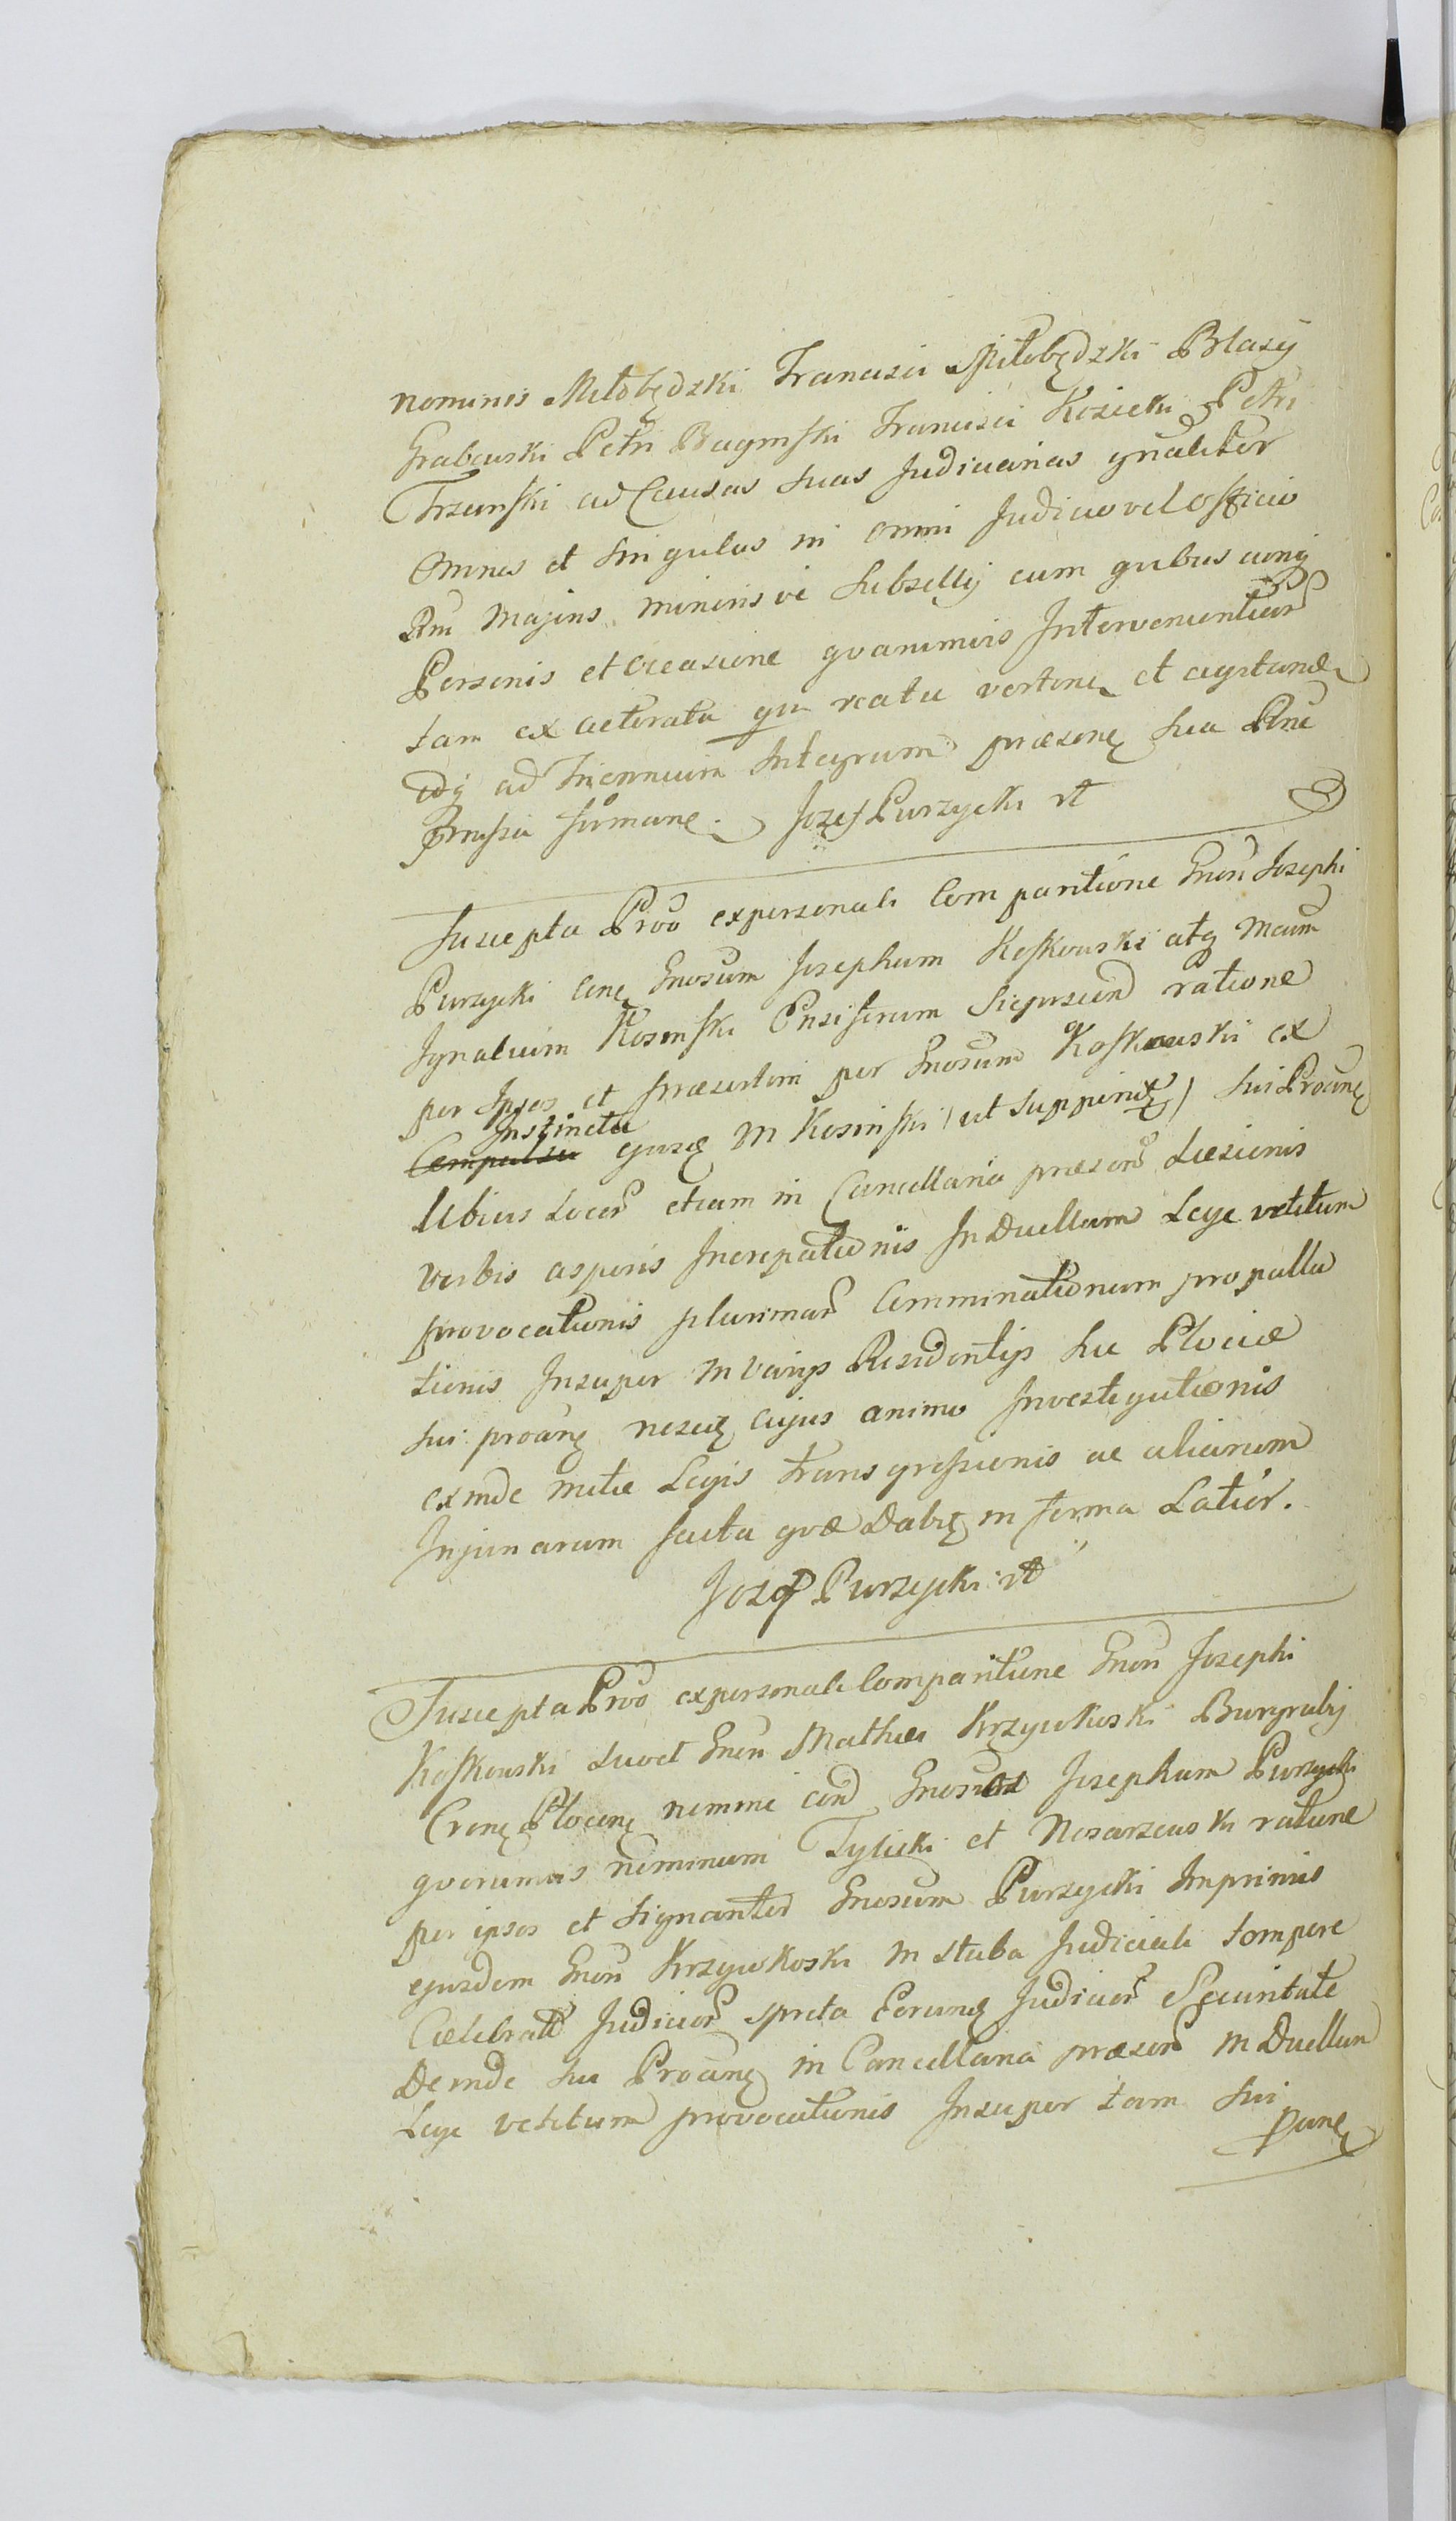 nominis Miłobędzki Francisci Miłobędzki Blasij
Grabowski Petri Baginski Francisci Kosicki Petri
Trzcinski ad Causas Suas Judiciarias gnaliter
Omnes et Singulas in omni Judicio vel Officio
Rni Majoris minorisve Subsellij cum qvibus cunq
Personis et occasione qvarumvis Interventionū
tam ex actoratu qu reatu verten et agitand
idq ad Triennium Integrum præsen sua Pne
Pmissa firman. Jozef Purzycki rt
Suscepta Proō ex personali Comparitione Gnōsi Josephi
Purzycki con Gnōsum Josephum Koskowski atq Mcum
Ignatium Kosinski Ensiferum Sieprscen ratione
per Ipsos et præsertim per Gnosum Koskowski ex
Instinctu
Compulsu ejusd M Kosinski (ut supponit) sui Procane
Ubivis Locorū etiam in Cancellaria præsen Læsionis
verbis asperis Increpationis In Duellum Lege vetitum
provocationis plurimarū Comminationum propalla
tionis Insuper in varijs Residentijs hic Plociæ
sui procane nescit cujus animo Investigationis
exinde metæ Legis transgressionis ac aliarum
Injuriarum facta qvæ Dabit in forma Latior.
Jozef Purzycki rt
Suscepta Proō ex personali Comparitione Gnōsi Josephi
Koskowski suo et Gnōsi Mathiæ Krzywkoski Burgrabij
Cren Plocen nomine con Gnosos Josephum Purzycki
qvorumvis nominum Tylicki et Nosarzewski ratione
per ipsos et signanter Gnosum Purzycki Imprimis
ejusdem Gnōsi Krzywkoski in stuba Judiciali tempore
Celebrat Judiciorū spreta Eorund Judiciorū Securitate
Deinde sui Procane in Cancellaria præsen in Duellum
Lege vetitum provocationis Insuper tam sui
Pane